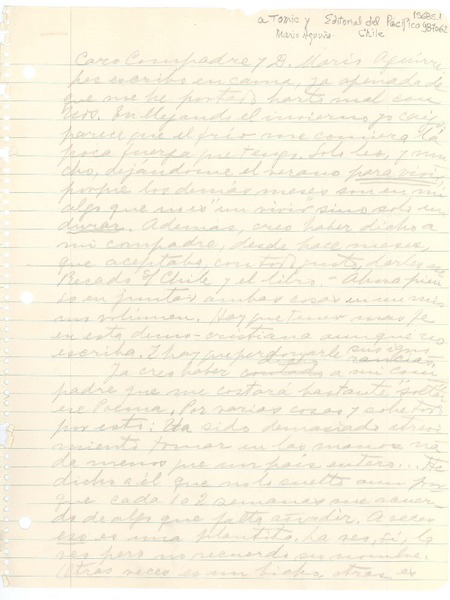 a Tomic y Editorial del Pacífico
Mario Aguirre Chile
Caro Compadre y D. Mario Aguirre,
les escribo en cama, ya apenada de
que me he portado harto mal con
Uds. En llegando el invierno, yo caigo,
parece que el frío me comiera la
poca fuerza que tengo. Solo leo, y mu-
cho, dejándome el verano para vivir,
porque los demás meses son en mí
algo que no es "un vivir" sino solo un
durar. Además, creo haber dicho a
mi compadre, desde hace meses,
que aceptaba, con todo gusto, darles
Recado s/ Chile y el libro. - Ahora pien-
so en juntar ambas cosas en un mis-
mo volumen. Hay que tener mas fe
en esta demo-cristiana aunque no
escriba. Y hay que perdonarle
Ya creo haber contado a mi com-
padre que me costará bastante "soltar"
ese Poema, por varias cosas y sobre todo
por esto: Ha sido demasiado atrevi-
miento tomar en las manos na-
da menos que un país entero... He
dicho a él que no lo suelto aun por-
que cada 1 o 2 semanas me acuer-
do de algo que falta añadir. A veces
eso es una plantita. La veo, sí, la
veo pero no recuerdo su nombre.
Otras veces es un bicho, otras es